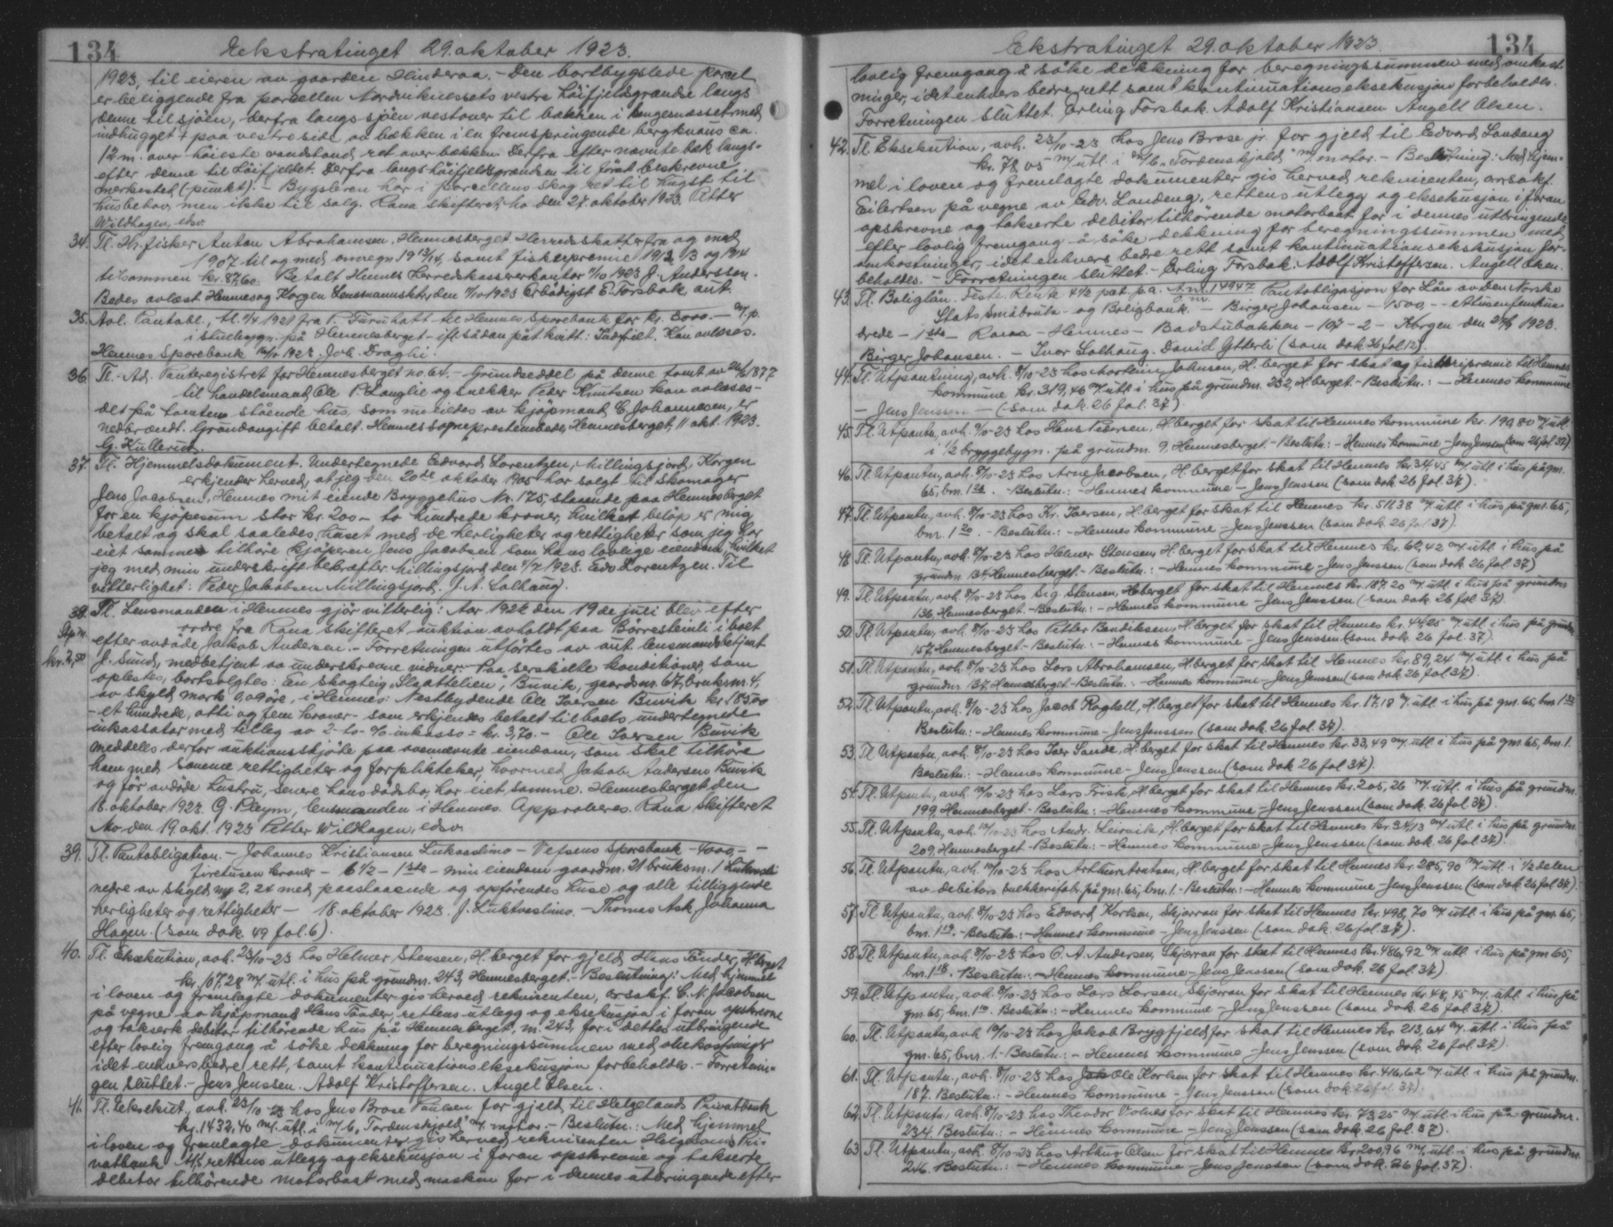 134 Ekstratinget 29. oktober 1923.
1923, til eieren av gaarden Hinderaa. - Den bortbygslede parcel
er beliggende fra parcellen Nordviknessets vestre høifjeldsgrændse langs
denne til sjøen, derfra langs sjøen vestover til bækken i
indhugget + paa vestre side av bækken i en fremspringende bergknaus ca.
12 m. over høieste vandstand, ret over bækken. Derfra efter nævnte bæk langs-
efter denne til høifjeldet. Derfra langs høifjeldsgrændsen til først beskrevne
merkested (punkt). - Bygsleren har i parcellens skog ret til hugst til
husbehov, men ikke til salg. Rana skifteret, Mo den 27. oktober 1923. Petter
Wildhagen, edsv.
34. Tl. Hr. fisker Anton Abrahamsen, Hemnesberget. Herredsskatt fra og med
1907 til og med samt fiskerpremie 1912/13 og 1914
tilkommen kr. 87,60. Betalt Hemnes Herredskassererkontor 1923 J. Anderssen.
Bedes avlæst Hemnes og Korgen Lensmannsktr., den 1923 Erbødigst E. Forsbak aut.
35. Avl. Pantobl., tl. 1921 fra P. til Hemnes Sparebank for kr. 3000.-
i på Hemnesberget - ifl. sådan påtkratt: Indfriet. Kan avlæses.
Hemnes Sparebank 1923. Joh. Draglie.
36. Tl. - Ad. Panteregistret for Hemnesberget no 64. - Grundseddel på denne tomt av 1877
til handelsmand Ole P. Langlie og snekker Peder Knutsen kan avlæses -
det på tomten stående hus, som meiedes av kjøpmand C. Johannesen, er
nedbrændt. Grundavgift betalt. Hemnes sogneprestembede, Hemnesberget, 11 okt. 1923.
G. Kullerud.
37. Tl. Hjemmelsdokument. Undertegnede Edvard Lorentzen, Millingsjord, Korgen
erkjender herved, at jeg den 20de oktober 1905 har solgt til skomager
Jens Jacobsen, Hemnes mit eiende Bryggehus Nr. 175, staaende paa Hemnesberget
for en kjøpesum stor kr. 200 - to hundrede kroner, hvilket beløp er mig
betalt og skal saaledes huset med de herligheter og rettigheter som jeg har
eiet samme tilhøre kjøperen Jens Jacobsen som hans lovlige eiendom, hvilket
jeg med min underskrift bekræfter. Millingsjord, den 1923. Edv. Lorentzen. Til
vitterlighet: Peder Jakobsen Millingsjord. J. A. Solhaug.
38. Tl. Lensmanden i Hemnes gjør vitterlig: Aar 1922 den 19de juli blev efter
ordre fra Rana skifteret auktion avholdt paa Børresteinli i boet
efter avdøde Jakob Andersen. - Forretningen utførtes av aut. lensmandsbetjent
J. Sund, medbetjent av underskrevne vidner. Paa særskilte konditioner, som
oplestes, bortsolgtes: En skogteig, Slaattelien, Buvik, gaardsnr. 67, bruksnr. 4,
av skyld mark 0,09 øre, i Hemnes. Høistbydende Ole Iversen Buvik kr. 185,00
- et hundrede, otti og fem kroner - som erkjendes betalt til boets undertegnede
inkassator med tillæg av 2 - to - % inkasso = kr. 3,70. - Ole Iversen Buvik
meddeles derfor auktionsskjøte paa ovennævnte eiendom, som skal tilhøre
ham med samme rettigheter og forplikteher, hvormed Jakob Andersen Buvik
og før avdøde hustru, senere hans dødsbo, har eiet samme. Hemnesberget den
18. oktober 1923. G. Pleym, lensmanden i Hemnes. Approberes. Rana skifteret
Mo den 19 okt. 1923 Petter Wildhagen, edsv.
39. Tl. Pantobligation. - Johannes Kristiansen Luktvasslimo - Vefsens sparebank - 4000,- -
firetusen kroner - 6 1/2 - 1ste - min eiendom gaardsnr. 21 bruksnr. 1
nedre av skyld m 2,24 med paastaaende og opførendes huse og alle tilliggende
herligheter og rettigheter - 18. oktober 1923. J. Luktvasslimo. - Thomas Aak, Johanna
Hagen. (som dok. 49 fol. 6).
40. Tl. Eksekution, avh. 23/10-23 hos Helmer Stensen, H.berget for gjeld Hans Tønder, H.berget
kr. 107,28 m/ utl. i hus på grundnr. 243, Hemnesberget. Beslutning: Med hjemmel
i loven og fremlagte dokumenter gis herved rekvirenten, orsakf. C. N. Jacobsen
på vegne av kjøpmand Hans Tønder, rettens utlegg og eksekusjon i foran opskrevne
og takserte debitor tilhørende hus på Hemnesberget nr. 243, for i dettes utbringende
efter lovlig fremgang å søke dekkning for beregningssummen med omkostninger
idet enhvers bedre rett, samt kontinuationseksekusjon forbeholdes. - Forretnin-
gen sluttet. - Jens Jenssen. Adolf Kristoffersen. Angel Olsen.
41. Tl. Eksekut., avh. 23/10-23 hos Jens Brose Paulsen for gjeld til Helgelands Privatbank
kr. 1432,40 m/ utl. i m/b. Tordenskjold m/ motor. - Beslutn.: Med hjemmel
i loven og fremlagte dokumenter gis herved rekvirenten Helgelands Pri-
vatbank A/S rettens utlegg og eksekusjon i foran opskrevne og takserte
debitor tilhørende motorbaat med maskin for i dennes utbringende efter
Ekstratinget 29. oktober 1923. 134
lovlig fremgang å søke dekkning for beregningssummen med omkost-
ninger, idet enhvers bedre rett samt kontinuationseksekusjon forbeholdes.
Forretningen sluttet. Erling Forsbak. Adolf Kristiansen. Angell Olsen.
42. Tl. Eksekution, avh. 23/10-23 hos Jens Brose jr. for gjeld til Edvard Landeng
kr. 78,05 m/ utl. i m/b. Tordenskjold m/ motor. - Beslutning: Med hjem-
mel i loven og fremlagte dokumenter gis herved rekvirenten, orsakf.
Eilertsen på vegne av Edv. Landeng, rettens utlegg og eksekusjon i foran
opskrevne og takserte debitor tilhørende motorbaat for i dennes utbringende
efter lovlig fremgang å søke dekkning for beregningssummen med
omkostninger, idet enhvers bedre rett samt kontinuationseksekusjon for-
beholdes. - Forretningen sluttet. - Erling Forsbak. Adolf Kristoffersen. Angell Olsen.
43. Tl. Boliglån. Feste. Rente 4 1/2 pct. p.a. A nr. 14947 Pantobligasjon for Lån av den Norske
Stats Småbruk- og Boligbank. - Birger Johansen - 1500,- - ettusenfemhun-
drede - 1ste - Rana - Hemnes - Badstubakken - 107 - 2 - Korgen den 1923.
Birger Johansen. - Ivar Solhaug. David Ytterli (som dok 36 fol 12).
44. Tl. Utpantning, avh. 8/10-23 hos Martein Johnsen, H.berget for skat og fiskeripremie til Hemnes
kommune kr. 319,46 m/ utl. i hus på grundnr. 232 H.berget. - Beslutn.: - Hemnes kommune
- Jens Jenssen - (- som dok. 26 fol. 37).
45. Tl. Utpantn., avh. 9/10-23 hos Hans Iversen, H.berget for skat til Hemnes kommune kr. 190,80 m/ utl.
i 1/2 bryggebygn. på grundnr. 9. Hemnesberget. - Beslutn.: - Hemnes kommune - Jens Jenssen (som dok 26 fol 37).
46. Tl. Utpantn., avh. 8/10-23 hos Arne Jacobsen, H.berget for skat til Hemnes kr. 34,45 m/ utl. i hus på gnr.
65, bnr. 1. - Beslutn.: - Hemnes kommune - Jens Jenssen (som dok 26 fol 37).
47. Tl. Utpantn., avh. 8/10-23 hos Kr. Iversen, H.berget for skat til Hemnes kr. 51,38 m/ utl. i hus på gnr 65,
bnr. 1. - Beslutn.: - Hemnes kommune - Jens Jenssen (som dok. 26 fol 37).
48. Tl. Utpantn., avh. 8/10-23 hos Helmer Stensen, H.berget for skat til Hemnes kr. 62,42 m/ utl. i hus på
grundnr. 134 Hemnesberget. - Beslutn.: - Hemnes kommune - Jens Jenssen (som dok 26 fol 37).
49. Tl. Utpantn., avh. 8/10-23 hos Sig. Stensen, H.berget for skat til Hemnes kr. 187,20 m/ utl. i hus på grundnr.
136, Hemnesberget. - Beslutn.: - Hemnes kommune - Jens Jenssen (som dok. 26 fol 37).
50. Tl. Utpantn., avh. 8/10-23 hos Petter Bendiksen, H.berget for skat til Hemnes kr. 44,25 m/ utl. i hus på grundnr.
157, Hemnesberget. - Beslutn.: - Hemnes kommune - Jens Jenssen (som dok. 26 fol. 37).
51. Tl. Utpantn., avh. 8/10-23 hos Lars Abrahamsen, H.berget for skat til Hemnes kr. 89,24 m/ utl. i hus på
grundnr. 137, Hemnesberget. - Beslutn.: - Hemnes kommune - Jens Jenssen (som dok. 26 fol 37).
52. Tl. Utpantn., avh. 8/10-23 hos Jacob Roghell, H.berget for skat til Hemnes kr. 17,18 m/ utl. i hus på gnr. 65, bnr. 1.
Beslutn.: - Hemnes kommune - Jens Jenssen (som dok. 26 fol. 37).
53. Tl. Utpantn., avh. 8/10-23 hos Iver Sande, H.berget for skat til Hemnes kr. 33,49 m/ utl. i hus på gnr. 65, bnr. 1.
Beslutn.: - Hemnes kommune - Jens Jenssen (som dok. 26 fol 37).
54. Tl. Utpantn., avh. 10/10-23 hos Lars Frisk, H.berget for skat til Hemnes kr. 205,26 m/ utl. i hus på grundnr.
199, Hemnesberget. - Beslutn.: - Hemnes kommune - Jens Jenssen (som dok. 26 fol. 37).
55. Tl. Utpantn., avh. 10/10-23 hos Andr. Leirvik, H.berget for skat til Hemnes kr. 34,13 m/ utl. i hus på grundnr.
209, Hemnesberget. - Beslutn.: - Hemnes kommune - Jens Jenssen (som dok. 26 fol. 37).
56. Tl. Utpantn., avh. 10/10-23 hos Arthur Arntsen, H.berget for skat til Hemnes kr. 285,90 m/ utl. i 1/2 delen
av debitors snekkerifabr. på gnr. 65, bnr. 1. - Beslutn.: - Hemnes kommune - Jens Jenssen (som dok. 26 fol 37).
57. Tl. Utpantn., avh. 9/10-23 hos Edvard Korlsen, Skjærran for skat til Hemnes kr. 498,70 m/ utl. i hus på gnr. 65,
bnr. 1. - Beslutn.: - Hemnes kommune - Jens Jenssen (som dok. 26 fol. 37).
58. Tl. Utpantn., avh. 9/10-23 hos O. A. Andersen, Skjærran for skat til Hemnes kr. 486,92 m/ utl. i hus på gnr. 65,
bnr. 1. - Beslutn.: - Hemnes kommune - Jens Jenssen (som dok. 26 fol. 37).
59. Tl. Utpantn., avh. 9/10-23 hos Lars Larsen, Skjærran for skat til Hemnes kr. 48,45 m/ utl. i hus på
gnr. 65, bnr. 1. Beslutn.: - Hemnes kommune - Jens Jenssen (som dok. 26 fol. 37).
60. Tl. Utpantn., avh. 10/10-23 hos Jakob Bryggfjeld, for skat til Hemnes kr. 213,64 m/ utl. i hus på
gnr. 65, bnr. 1. - Beslutn.: - Hemnes kommune - Jens Jenssen (som dok. 26 fol. 37).
61. Tl. Utpantn., avh. 8/10-23 hos Ole Korlsen for skat til Hemnes kr. 416,62 m/ utl. i hus på grundnr.
187. Beslutn.: - Hemnes kommune - Jens Jenssen (som dok 26 fol. 37).
62. Tl. Utpantn., avh. 8/10-23 hos Theodor Volnes for skat til Hemnes kr. 73,25 m/ utl. i hus på grundnr.
234. Beslutn.: - Hemnes kommune - Jens Jenssen (som dok. 26 fol. 37).
63. Tl. Utpantn., avh. 8/10-23 hos Arthur Olsen for skat til Hemnes kr. 200,96 m/ utl. i hus på grundnr.
246. Beslutn.: - Hemnes kommune - Jens Jenssen (som dok. 26 fol. 37).